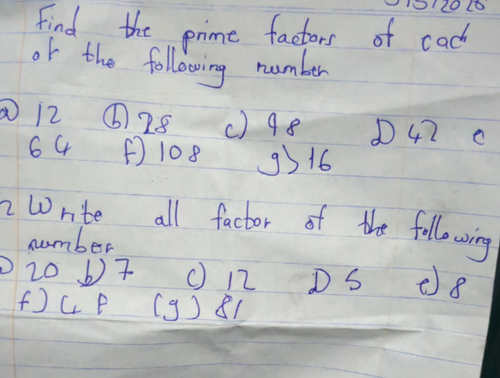 Find the prime factors of each
of the following number
a) 12 (b) 28 c) 98 D 42 e
64 f) 108 g) 16
2 Write all factor of the following
number
20 b) 7 c) 12 D 5 e) 8
f) 48 (g) 81